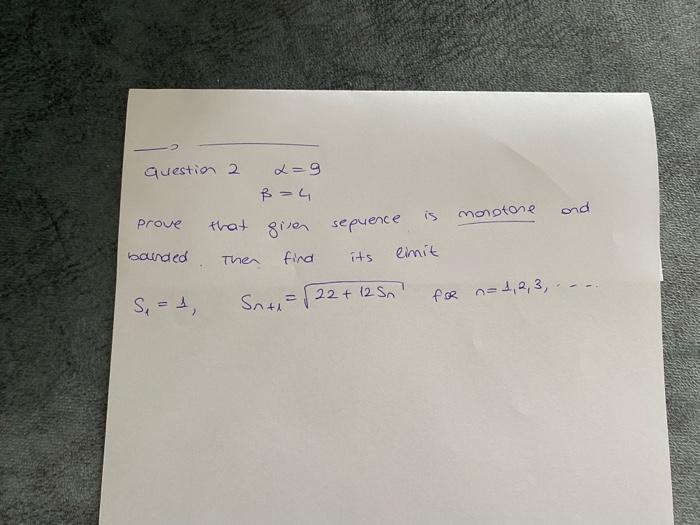 Question 2 α = 9
β = 4
prove that given sequence is monotone and
bounded. Then find its limit
S₁ = 1, Sₙ₊₁ = √22 + 12 Sₙ for n = 1, 2, 3, - - - -